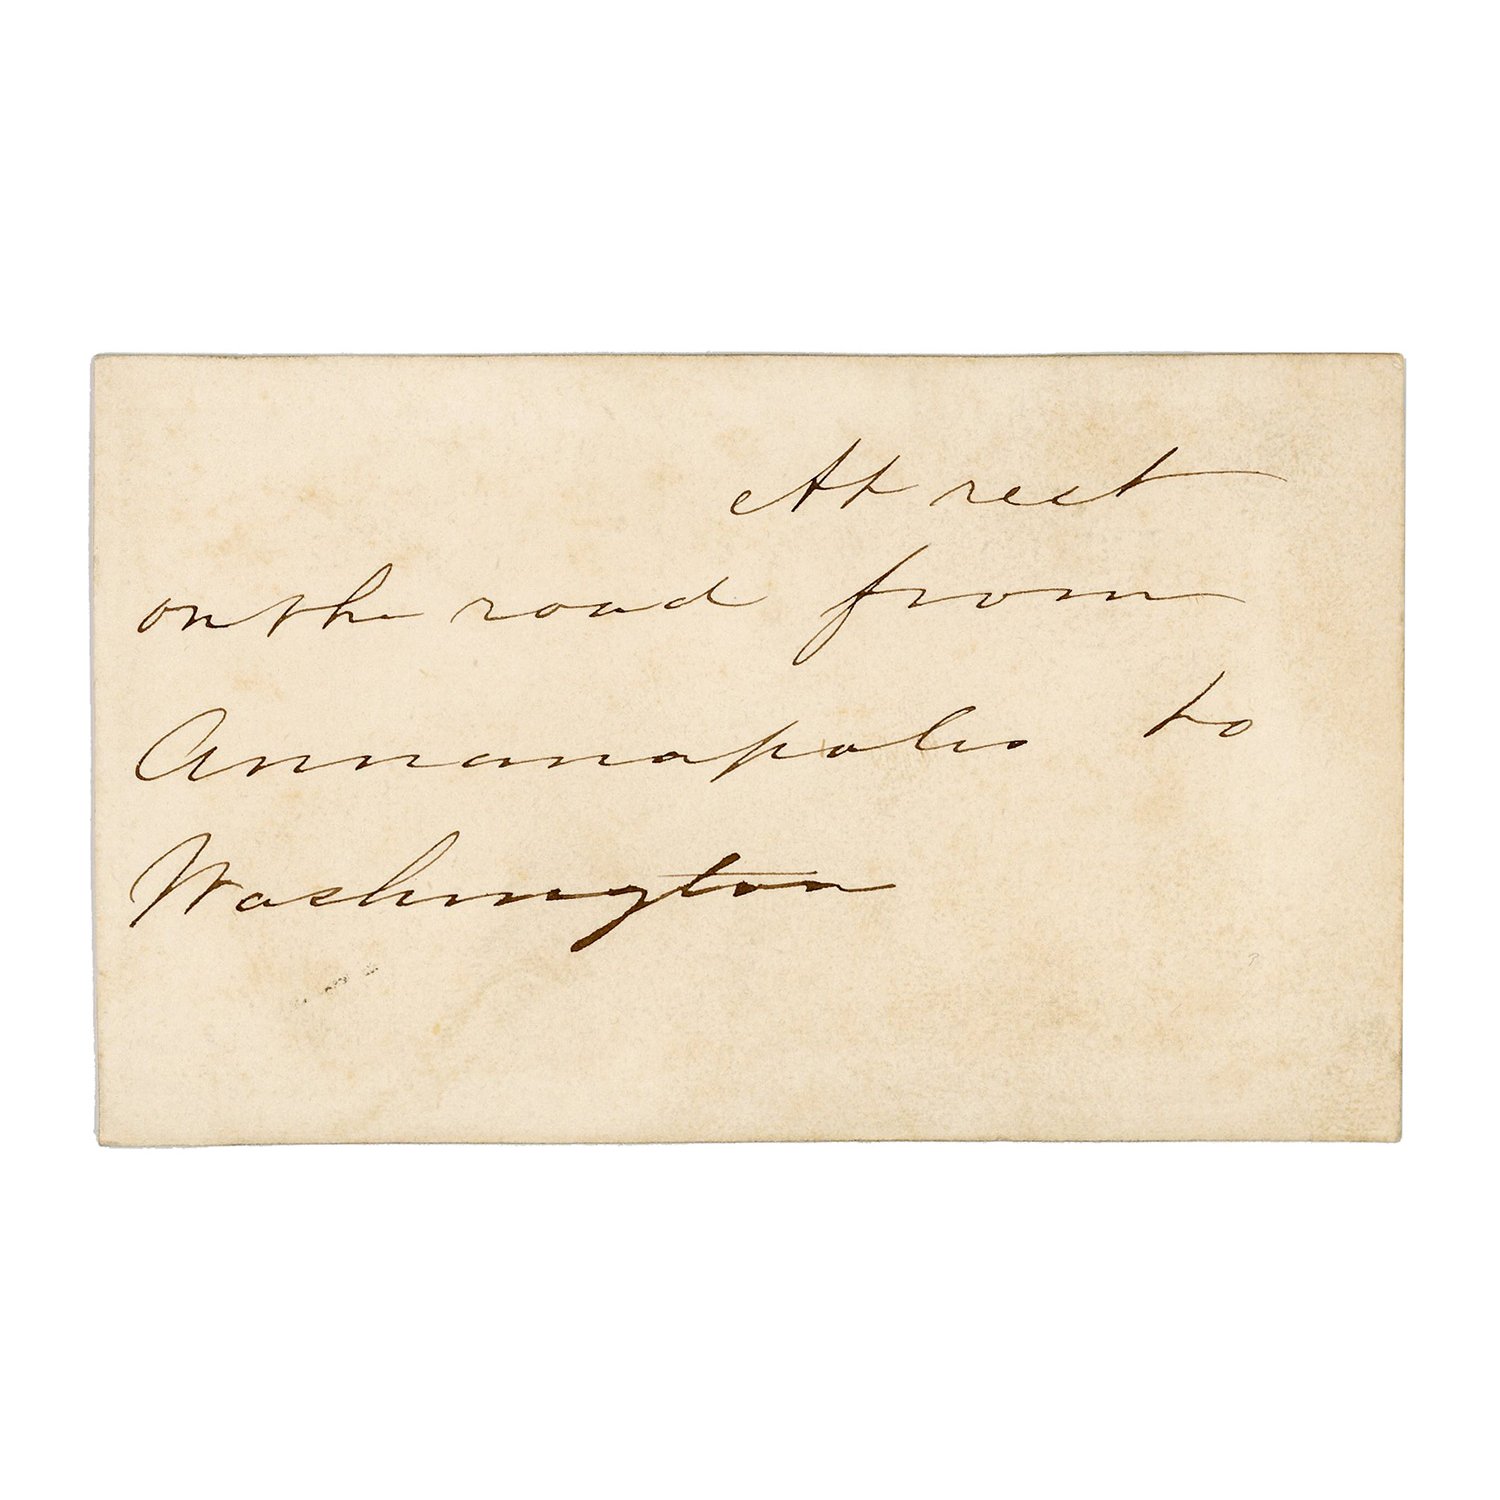 At rest
on the road from
Annanapolis to
Washington